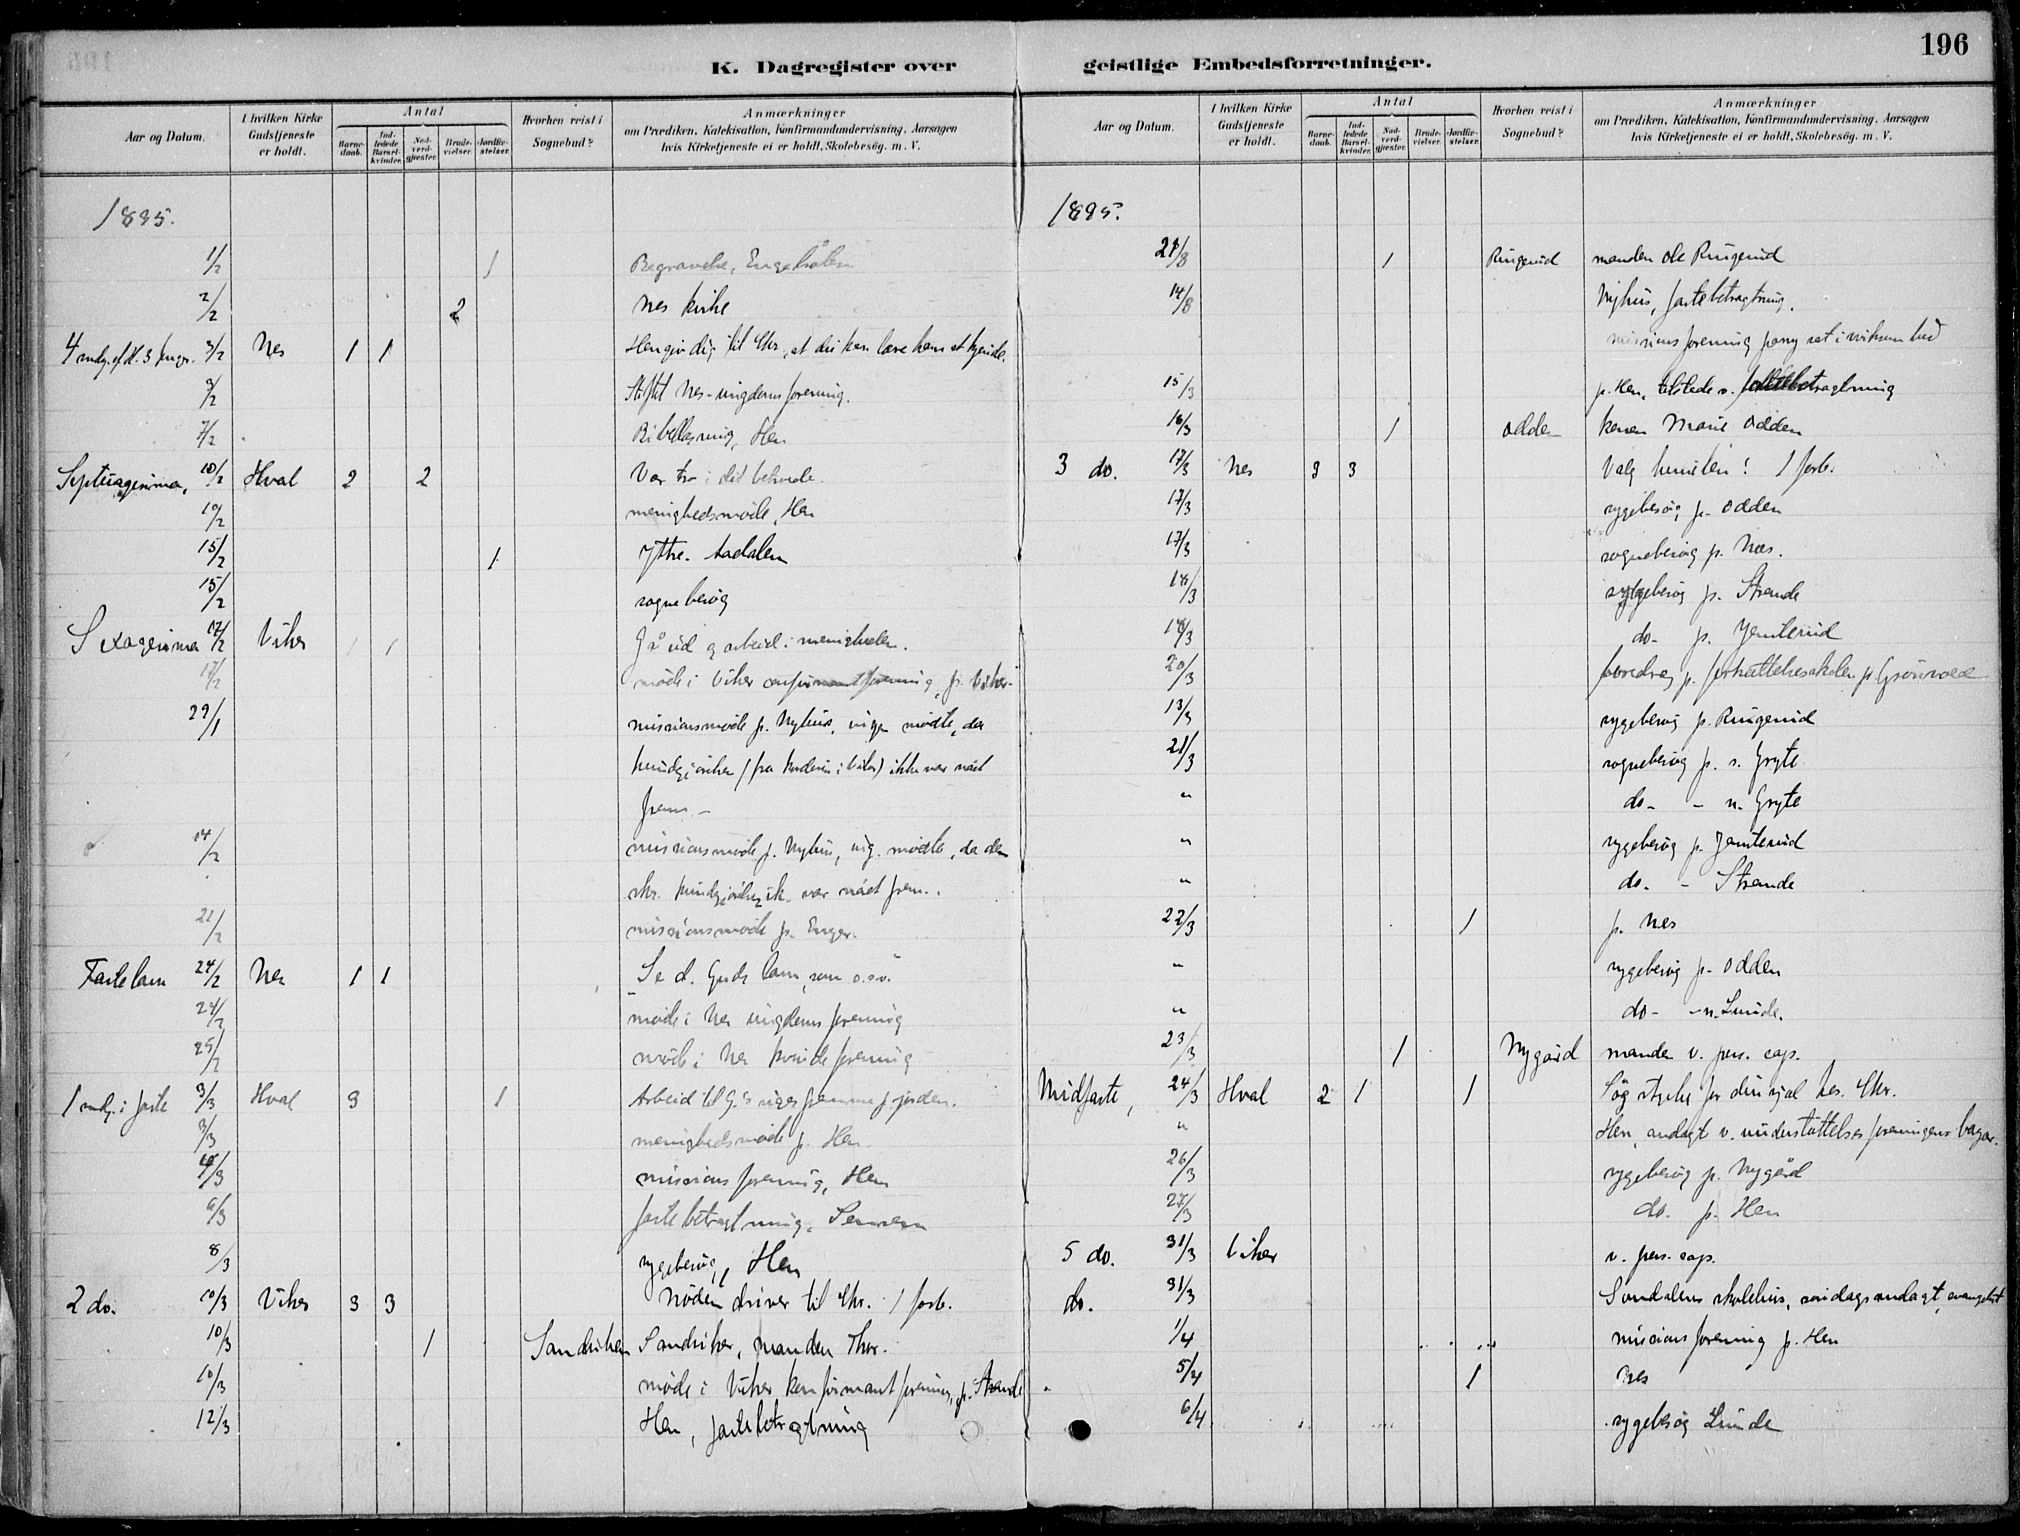 196
K. Dagregister over geistlige Embedsforretninger.
Aar og Datum.
I hvilken Kirke Gudstjeneste er holdt.
Antal
Barnedaab.
Indledede Barselkvinder.
Nadverdgjæster.
Brudevielser.
Jordfæstelser.
Hvorhen reist i Sognebud?
Anmærkninger
om Prædiken, Katekisation, Konfirmandundervisning, Aarsagen
hvis Kirketjeneste ei er holdt, Skolebesög. m. V.
1895.
1/2 1 Begravelse,
2/2 2 Nes kirke
3/2 Nes 1 1 Hengiv dig til Chr., at du kan lære ham at kjende.
3/2 Stiftet Nes-ungdomsforening.
7/2 Bibellæsning, Hen
Septuagesima, 10/2 Hval 2 2 Vær tro i det betroede.
10/2 menighedsmøde, Hen
15/2 1 Ytre Aadalen
15/2 sognebesøg
Sexagesima 17/2 Viker 1 1 Gå ud og arbeid i menigheden.
17/2 møde i Viker
29/1 missionsmøde p. Nyhus, ingen mødte, da
kundgjørelsen (fra i Viker) ikke var nået
frem –
14/2 missionsmøde p. Nyhus, ing. mødte, da den
skr. kundgjørelse ik. var nået frem.
21/2 missionsmøde p. Enger.
Fastelavn 24/2 Nes 1 1 Se d. Guds lam, som o.s.v.
24/2 møde i Nes ungdomsforening
25/2 møde i Nes kvindeforening
1 sndg. i faste 3/3 Hval 3 1 Arbeid til G.s riges fremme p. jorden.
3/3 menighedsmøde p. Hen.
4/3 missionsforening, Hen
6/3 fastebetragtning,
8/3 sygebesøg, Hen
2 do. 10/3 Viker 3 3 Nøden driver til Chr. 1 forb.
10/3 1 Sandviken Sandviken, manden Thor.
10/3 møde i Viker konfirmantforening, p. Strande
12/3 Hen, fastebetragtning
Aar og Datum.
I hvilken Kirke Gudstjeneste er holdt.
Antal
Barnedaab.
Indledede Barselkvinder.
Nadverdgjæster.
Brudevielser.
Jordfæstelser.
Hvorhen reist i Sognebud?
Anmærkninger
om Prædiken, Katekisation, Konfirmandundervisning, Aarsagen
hvis Kirketjeneste ei er holdt, Skolebesög. m. V.
1895.
1 Ringerud manden Ole Ringerud
Nyhus, fastebetragtning.
missionsforening påny sat i virksomhed
15/3 p. Hen, tilstede v. fastebetragtning
16/3 1 Odden konen Marie Odden
3 do. 17/3 Nes 3 3 Valg himlen! 1 forb.
17/3 sygebesøg p. Odden
17/3 sognebesøg p. Nes.
18/3 sygebesøg p. Strande
18/3 do. p. Jenterud
20/3 foredrag p. fortsættelsesskolen p. Grønvold
13/3 sygebesøg p. Ringerud
21/3 sognebesøg p. s. Gryte
" do – – n. Gryte
" sygebesøg p. Jenterud
" do. – Strande
22/3 1 p. Nes
" sygebesøg p. Odden
" do – – n. Lunde.
23/3 1 Nygård manden v. pers. cap.
Midfaste, 24/3 Hval 2 1 1 Søg styrke for din sjæl hos Chr.
" Hen, andagt v. understøttelsesforeningens bazar.
26/3 sygebesøg p. Nygård
27/3 do. p. Hen
5 do. 31/3 Viker v. pers. cap.
do. 31/3 Sundalens skolehus, søndagsandagt, evangeliet
1/4 missionsforening p. Hen
5/4 1 Nes
6/4 sygebesøg Lunde